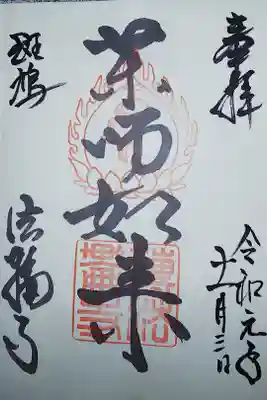 奉拝
令和元年
十一月三日
薬師如来
斑鳩
法輪寺